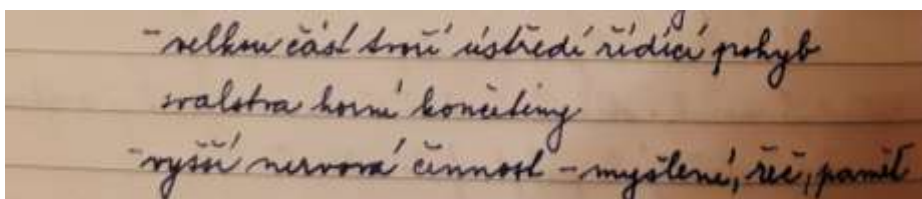 - velkou část tvoří ústředí řídící pohyb
svalstva horní končetiny
- vyšší nervová činnost - myšlení, řeč, paměť